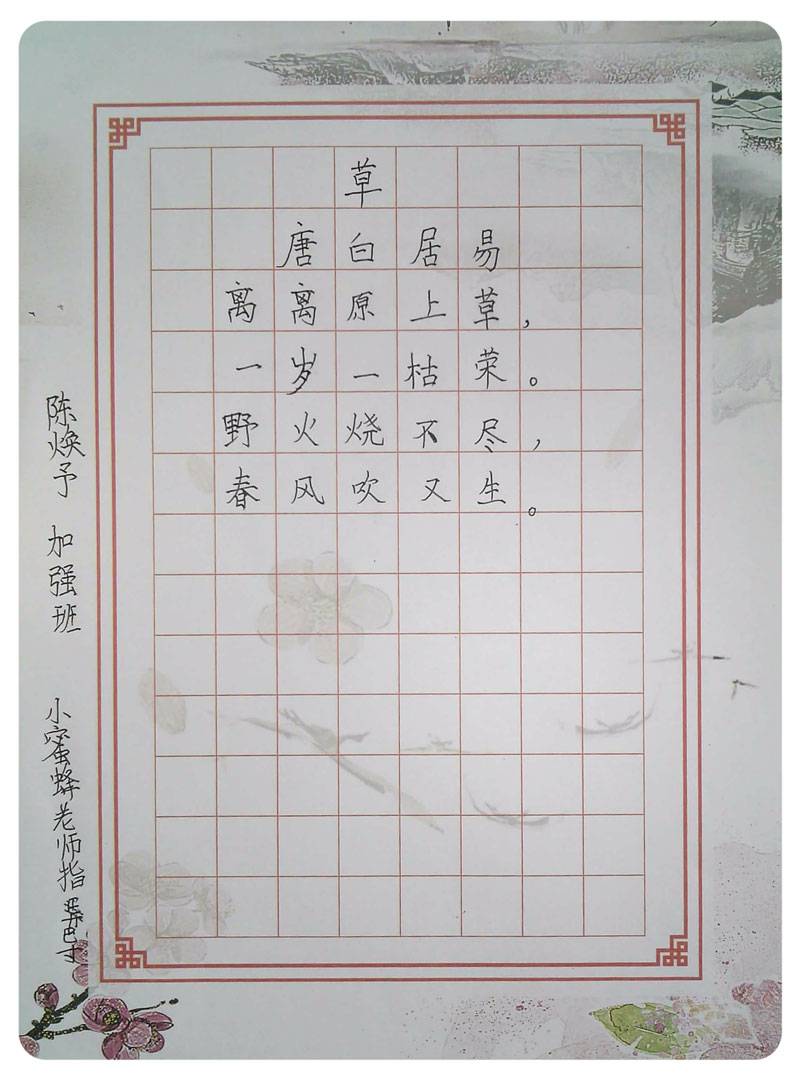 草
唐白居易
离离原上草，
一岁一枯荣。
野火烧不尽，
春风吹又生。
陈焕予 加强班 小蜜蜂老师指